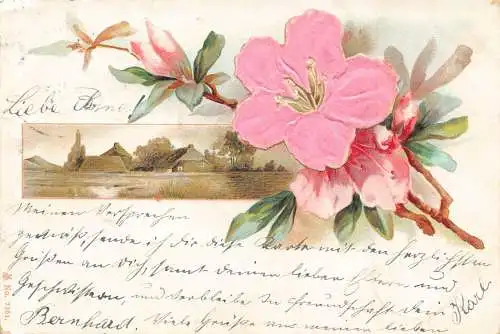 Liebe
Meinem Versprechen
gemäß, sende ich dir diese Karte mit den herzlichsten
Grüßen an Dich, samt deinen lieben Eltern und
Geschwistern, und verbleibe in Freundschaft dein
Bernhard. Viele Grüße von meinen lieben
Karl
No. 1161.